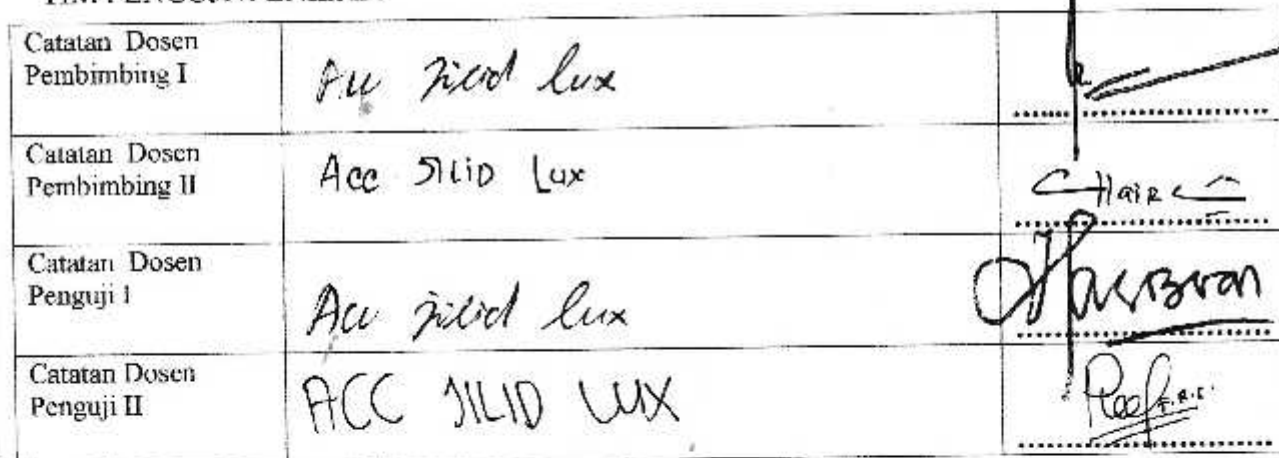 Catatan Dosen
Pembimbing I
Acc Jilid lux
Catatan Dosen
Pembimbing II
Acc JILID Lux
Catatan Dosen
Penguji I
Acc jilid lux
Catatan Dosen
Penguji II
ACC JILID LUX